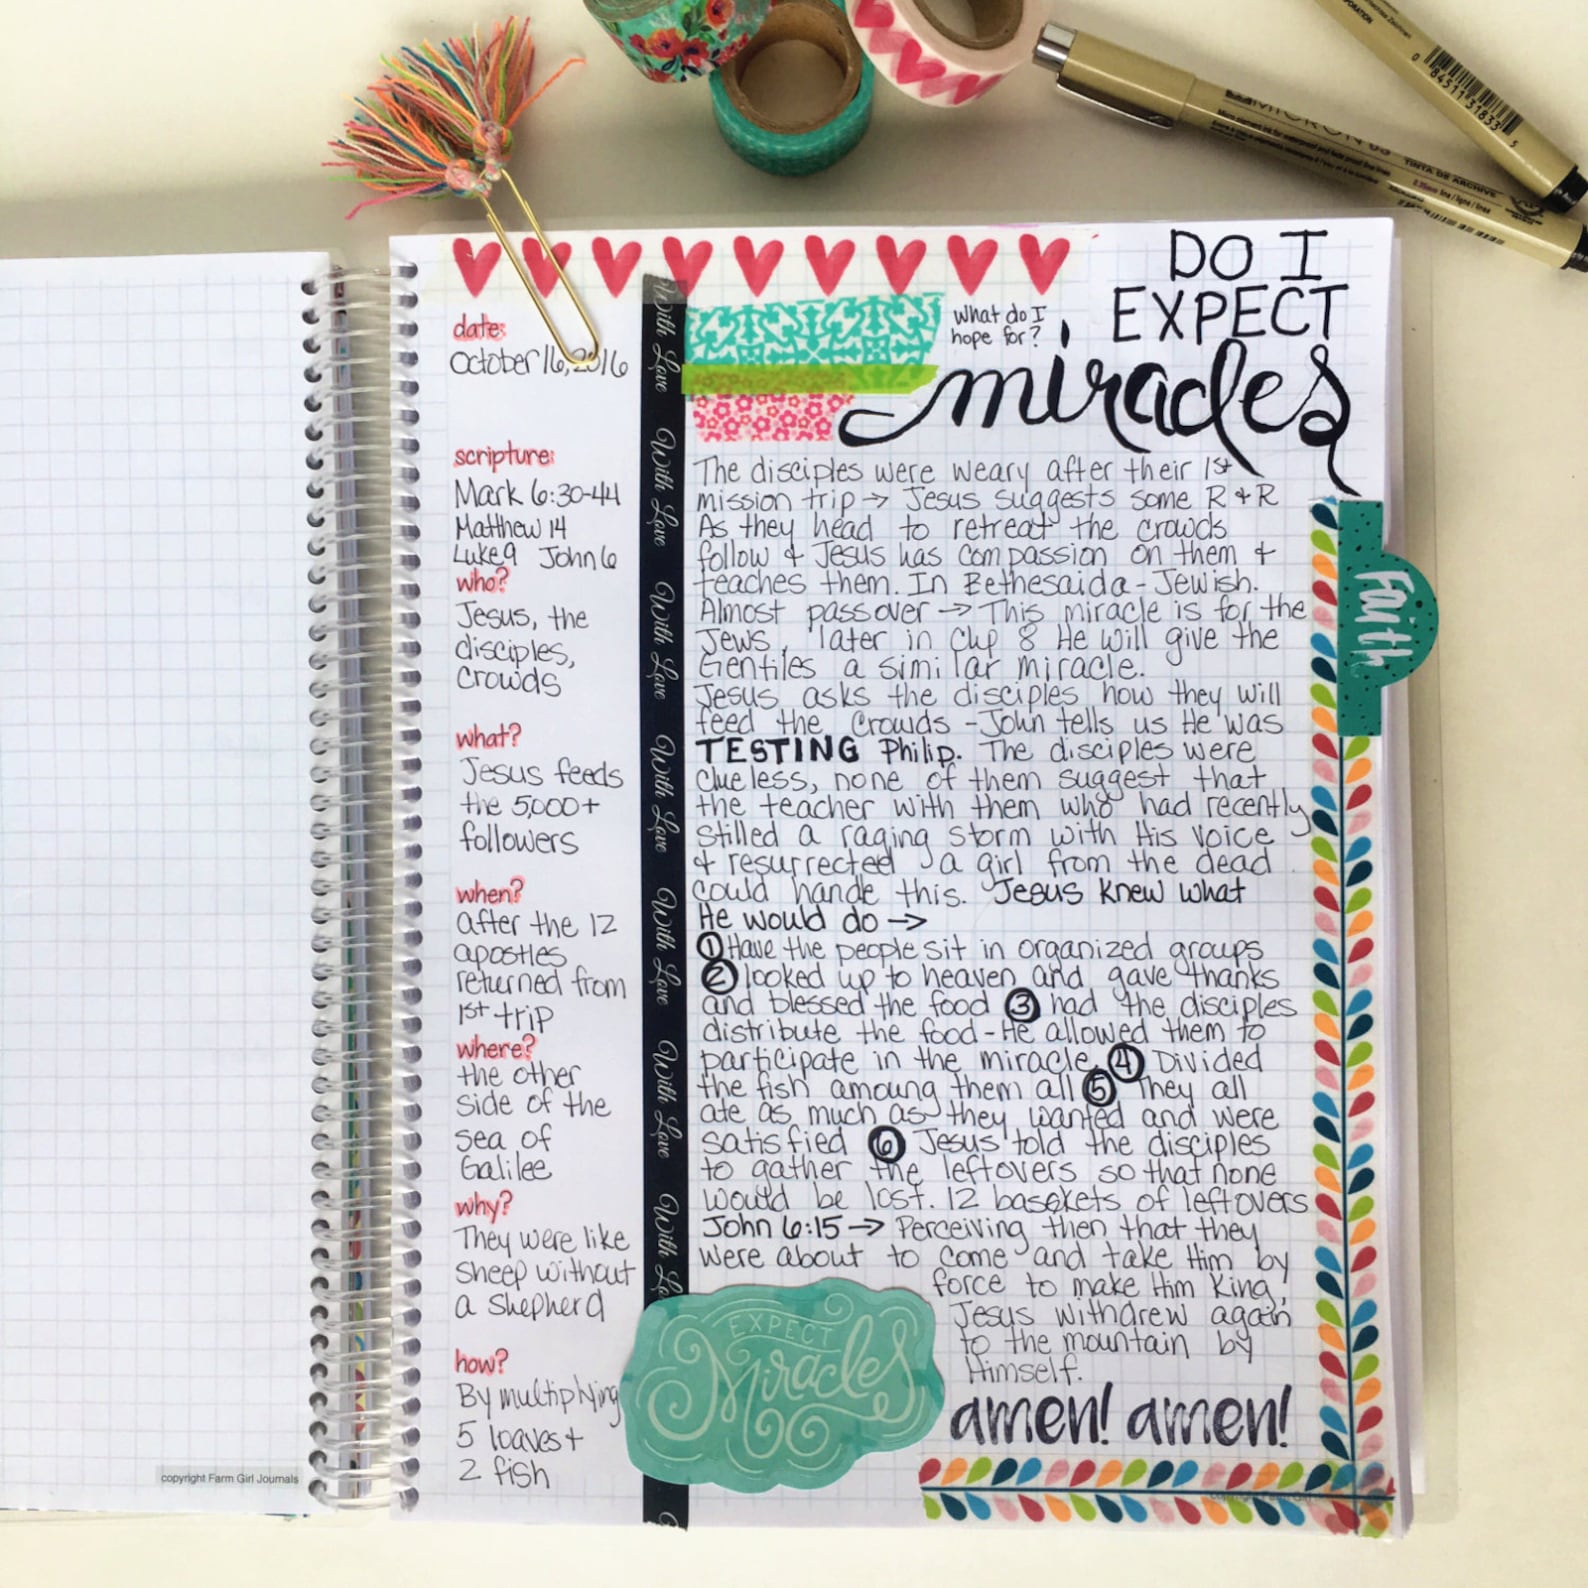 MICRON 05
TINTA DE ARCHIVE
0 84511 31833 5
DO I
EXPECT
miracles
What do I
hope for?
date:
October 16, 2016
scripture:
Mark 6:30-44
Matthew 14
Luke 9 John 6
who?
Jesus, the
disciples,
crowds
what?
Jesus feeds
the 5,000+
followers
when?
after the 12
apostles
returned from
1st trip
where?
the other
side of the
sea of
Galilee
why?
They were like
sheep without
a shepherd
how?
By multiplying
5 loaves +
2 fish
With Love
With Love
With Love
With Love
With Love
With Love
With Love
The disciples were weary after their 1st
mission trip → Jesus suggests some R & R
As they head to retreat the crowds
follow & Jesus has compassion on them +
teaches them. In Bethesaida - Jewish.
Almost passover → This miracle is for the
Jews, later in chp 8 He will give the
Gentiles a similar miracle.
Jesus asks the disciples how they will
feed the crowds - John tells us He was
TESTING Philip. The disciples were
clueless, none of them suggest that
the teacher with them who had recently
stilled a raging storm with His voice
& resurrected a girl from the dead
could hande this. Jesus knew what
He would do →
1 Have the people sit in organized groups
2 looked up to heaven and gave thanks
and blessed the food 3 had the disciples
distribute the food - He allowed them to
participate in the miracle. 4 Divided
the fish amoung them all 5 They all
ate as much as they wanted and were
satisfied 6 Jesus told the disciples
to gather the leftovers so that none
would be lost. 12 baskets of leftovers
John 6:15 → Perceiving then that they
were about to come and take Him by
force to make Him King,
Jesus withdrew again
to the mountain by
Himself.
amen! amen!
EXPECT
Miracles
Faith
copyright Farm Girl Journals